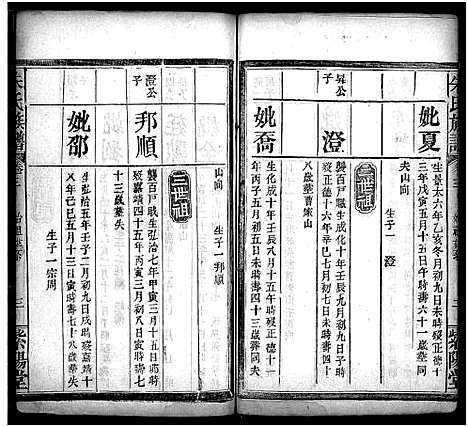 朱氏族譜
妣夏
生景泰六年乙亥冬月初九日亥時歿正德十
三年戊寅五月十五日午時壽六十一歲葬同
夫山向
生子一 澄
二世祖
昇公
子
澄
襲百戶職生成化十年壬辰九月初九日子時
歿正德十六年辛巳七月初七日未時壽四十
八歲葬曹家山
妣喬
生成化十年壬辰五月初五日戌時歿正德十一
年丙子五月三十日寅時壽四十三歲葬同夫
山向
生子一邦順
三世祖
澄公
子
邦順
襲百戶職生弘治七年甲寅三月十五日寅時
歿嘉靖四十五年丙寅三月初八日寅時壽七
十三歲葬失
妣邵
生弘治五年壬子二月初九日戌時歿嘉靖十
年己巳五月十三日寅時壽七十八歲葬失
生子一宗周
朱氏族譜
卷三
始祖世系
三
紫陽堂